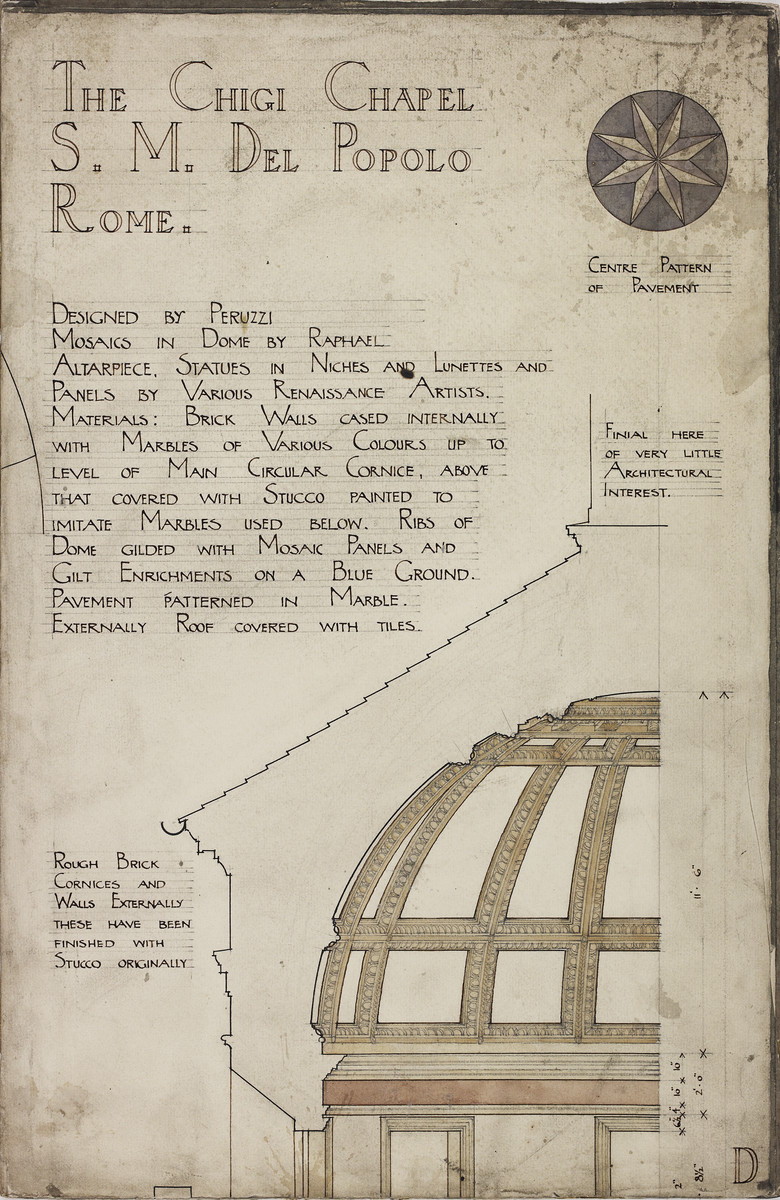 THE CHIGI CHAPEL
S. M. DEL POPOLO
ROME.
CENTRE PATTERN
OF PAVEMENT
DESIGNED BY PERUZZI
MOSAICS IN DOME BY RAPHAEL
ALTARPIECE, STATUES IN NICHES AND LUNETTES AND
PANELS BY VARIOUS RENAISSANCE ARTISTS.
MATERIALS: BRICK WALLS CASED INTERNALLY
WITH MARBLES OF VARIOUS COLOURS UP TO
LEVEL OF MAIN CIRCULAR CORNICE, ABOVE
THAT COVERED WITH STUCCO PAINTED TO
IMITATE MARBLES USED BELOW. RIBS OF
DOME GILDED WITH MOSAIC PANELS AND
GILT ENRICHMENTS ON A BLUE GROUND.
PAVEMENT PATTERNED IN MARBLE.
EXTERNALLY ROOF COVERED WITH TILES.
FINIAL HERE
OF VERY LITTLE
ARCHITECTURAL
INTEREST.
ROUGH BRICK
CORNICES AND
WALLS EXTERNALLY
THESE HAVE BEEN
FINISHED WITH
STUCCO ORIGINALLY
11'. 6"
10" 10"
2'. 0"
2"
8½"
D